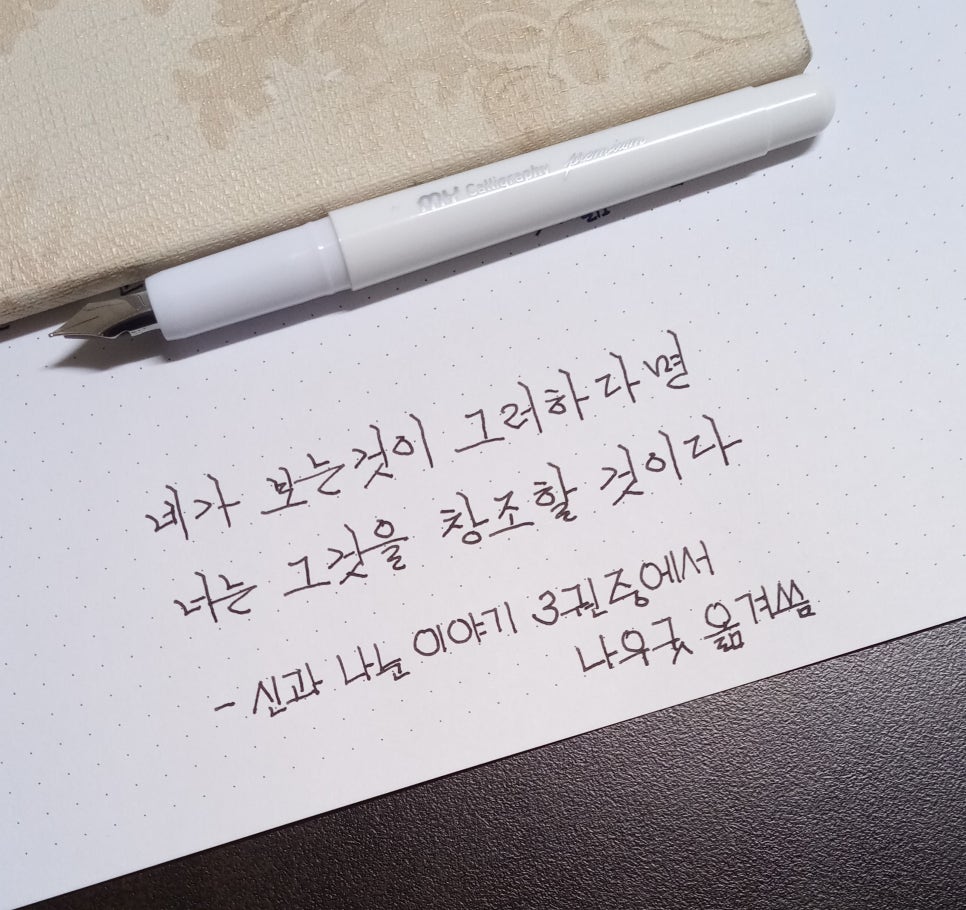 MY Calligraphy premium
네가 보는것이 그러하다면
너는 그것을 창조할 것이다
- 신과 나눈 이야기 3권중에서
나우굿 옮겨씀